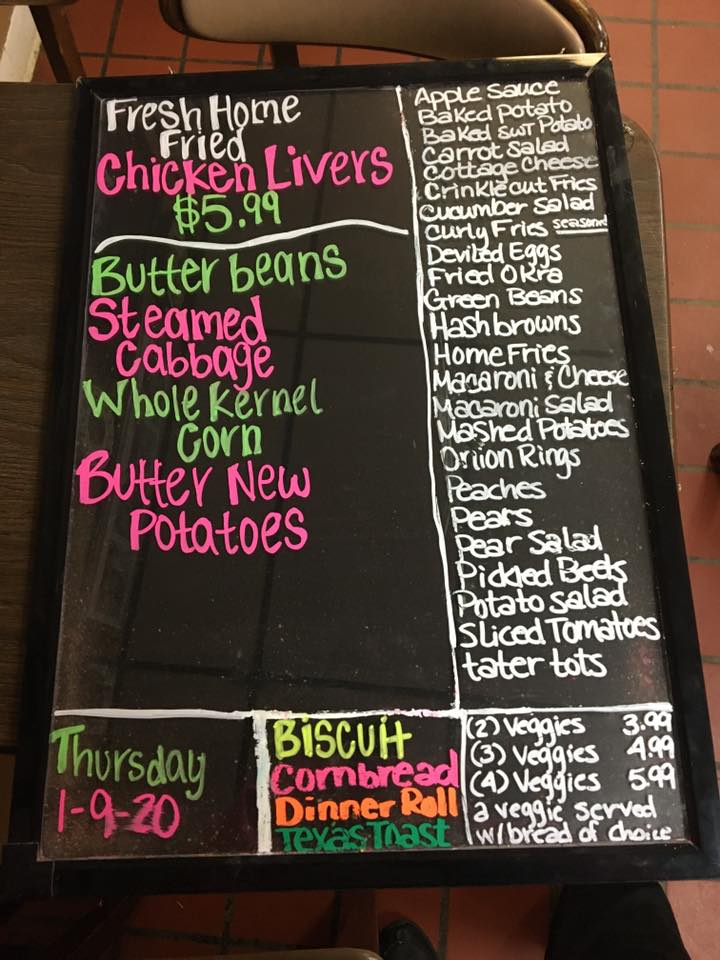 Fresh Home
Fried
Chicken Livers
$5.99
Butter beans
Steamed
Cabbage
Whole Kernel
Corn
Butter New
Potatoes
Apple Sauce
Baked Potato
Baked SWT Potato
Carrot Salad
Cottage Cheese
Crinkle cut Fries
Cucumber Salad
Curly Fries seasoned
Deviled Eggs
Fried Okra
Green Beans
Hashbrowns
Home Fries
Macaroni & Cheese
Macaroni Salad
Mashed Potatoes
Onion Rings
Peaches
Pears
Pear Salad
Pickled Beets
Potato Salad
Sliced Tomatoes
tater tots
Thursday
1-9-20
Biscuit
Cornbread
Dinner Roll
Texas Toast
(2) Veggies 3.99
(3) Veggies 4.99
(4) Veggies 5.99
a veggie served
w/ bread of choice